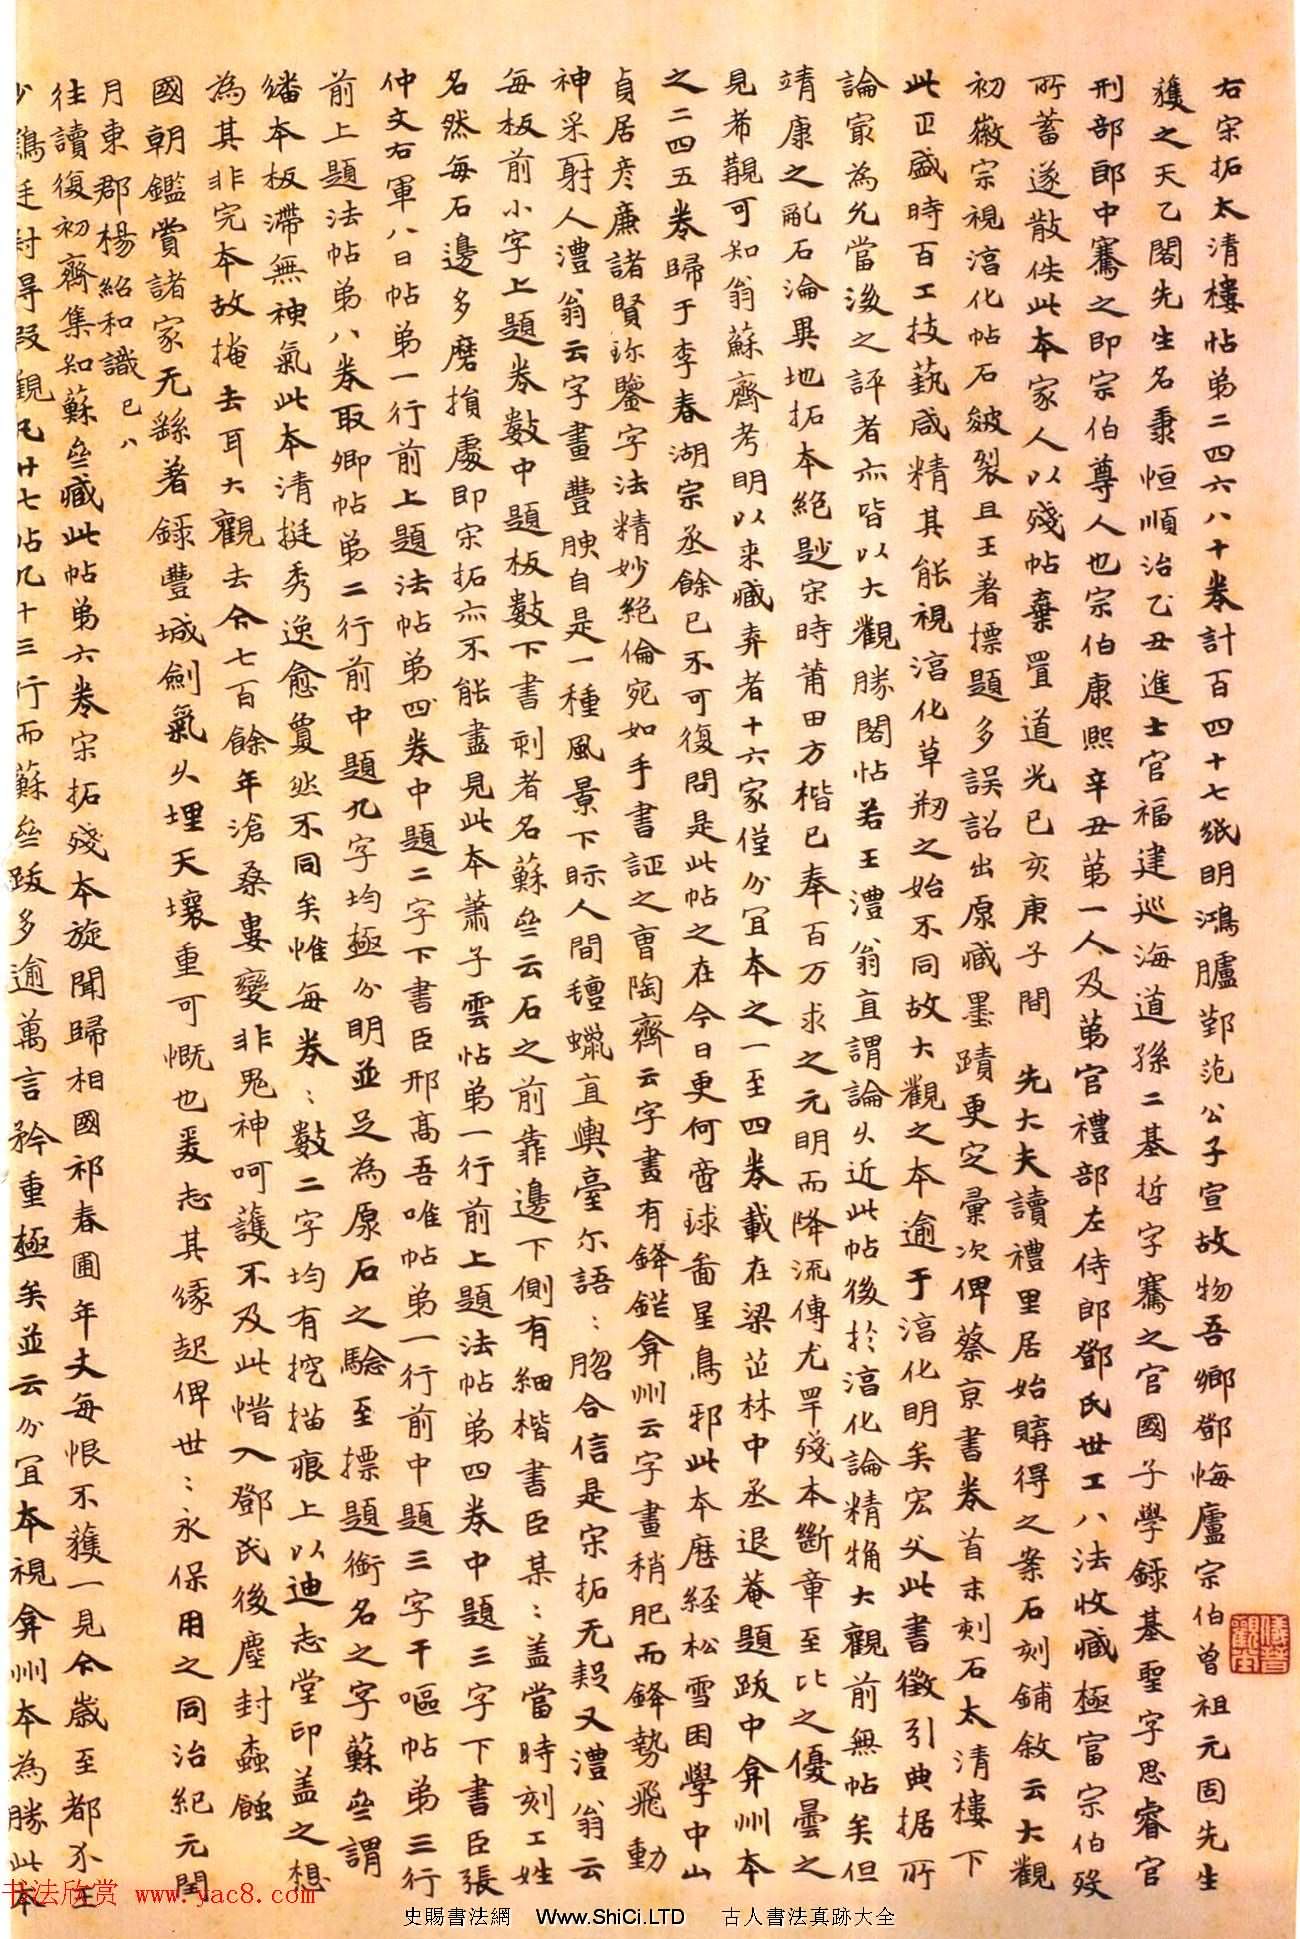 右宋拓太清樓帖第二四六八十卷計百四十七紙明鴻臚鄞范公子宣故物吾鄉鄧悔廬宗伯曾祖元固先生
獲之天乙閣先生名秉恒順治乙丑進士官福建巡海道孫二基哲字騫之官國子學錄基聖字思睿官
刑部郎中騫之即宗伯尊人也宗伯康熙辛丑第一人及第官禮部左侍郎鄧氏世工八法收藏極富宗伯歿
所蓄遂散佚此本家人以殘帖棄置道光己亥庚子間 先大夫讀禮里居始購得之案石刻鋪敘云大觀
初徽宗視淳化帖石皴裂且王著標題多誤詔出原藏墨蹟更定彙次俾蔡京書卷首末刻石太清樓下
此正盛時百工技藝咸精其能視淳化草刱之始不同故大觀之本逾于淳化明矣宏父此書徵引典据所
論最為允當後之評者亦皆以大觀勝閣帖若王澧翁直謂論久近此帖後於淳化論精觕大觀前無帖矣但
靖康之亂石淪異地拓本絕尟宋時莆田方楷已奉百万求之元明而降流傳尤罕殘本斷章至比之優曇之
見希覯可知翁蘇齋考明以來藏弆者十六家僅分宜本之一至四卷載在梁茝林中丞退菴題跋中弇州本
之二四五卷歸于李春湖宗丞餘已不可復問是此帖之在今日更何啻球啚星鳥邪此本歷經松雪困學中山
貞居彥廉諸賢珍鑒字法精妙絕倫宛如手書証之曹陶齋云字畫有鋒鋩弇州云字畫稍肥而鋒勢飛動
神采射人澧翁云字畫豐腴自是一種風景下眎人間氊蠟直輿臺尔語〻脗合信是宋拓无疑又澧翁云
每板前小字上題卷數中題板數下書刺者名蘇壘云石之前靠邊下側有細楷書臣某〻盖當時刻工姓
名然每石邊多磨損處即宋拓亦不能盡見此本蕭子雲帖第一行前上題法帖第四卷中題三字下書臣張
仲文右軍八日帖第一行前上題法帖第四卷中題二字下書臣邢高吾唯帖第一行前中題三字干嘔帖第三行
前上題法帖第八卷取卿帖第二行前中題九字均極分明並足為原石之驗至標題銜名之字蘇壘謂
繙本板滯無神氣此本清挺秀逸愈夐然不同矣惟每卷〻數二字均有挖描痕上以迪志堂印盖之想
為其非完本故掩去耳大觀去今七百餘年滄桑婁變非鬼神呵護不及此惜入鄧氏後塵封蟲蝕
國朝鑑賞諸家无繇著錄豐城劍氣久埋天壤重可慨也爰志其緣起俾世〻永保用之同治紀元閏
八月東郡楊紹和識
往讀復初齋集知蘇壘藏此帖第六卷宋拓殘本旋聞歸相國祁春圃年丈每恨不獲一見今歲至都
觀凡廿七帖九十三行而蘇壘跋多逾萬言矜重極矣並云分宜本視弇州本為勝此本
书法欣赏 www.yac8.com
史賜書法網 Www.ShiCi.LTD 古人書法真跡大全